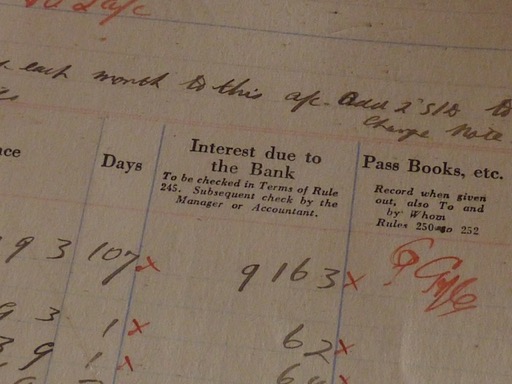 each month to this a/c. Add 2 Slb to
Charge Note
nce
Days
Interest due to
the Bank
To be checked in Terms of Rule
245. Subsequent check by the
Manager or Accountant.
Pass Books, etc.
Record when given
out, also To and
by Whom
Rules 250 to 252
9 3 107 x 9163 x
9 3 1 x 62 x
3 9 1 x